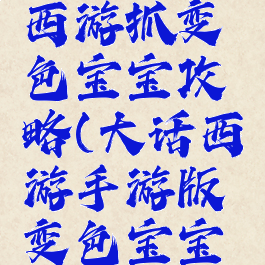 西游抓变
色宝宝攻
略(大话西
游手游版
变色宝宝